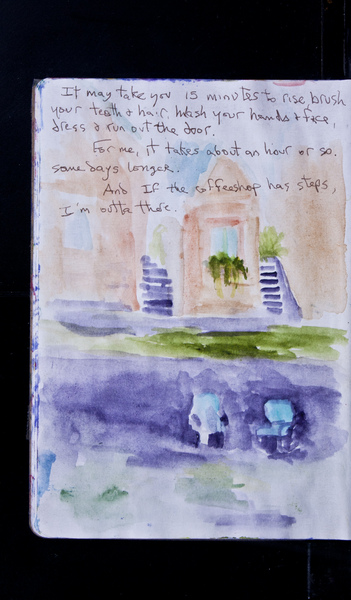 It may take you 15 minutes to rise, brush
your teeth & hair. Wash your hands & face,
dress & run out the door.
For me, it takes about an hour or so.
some days longer.
And If the coffeeshop has steps,
I'm outta there.